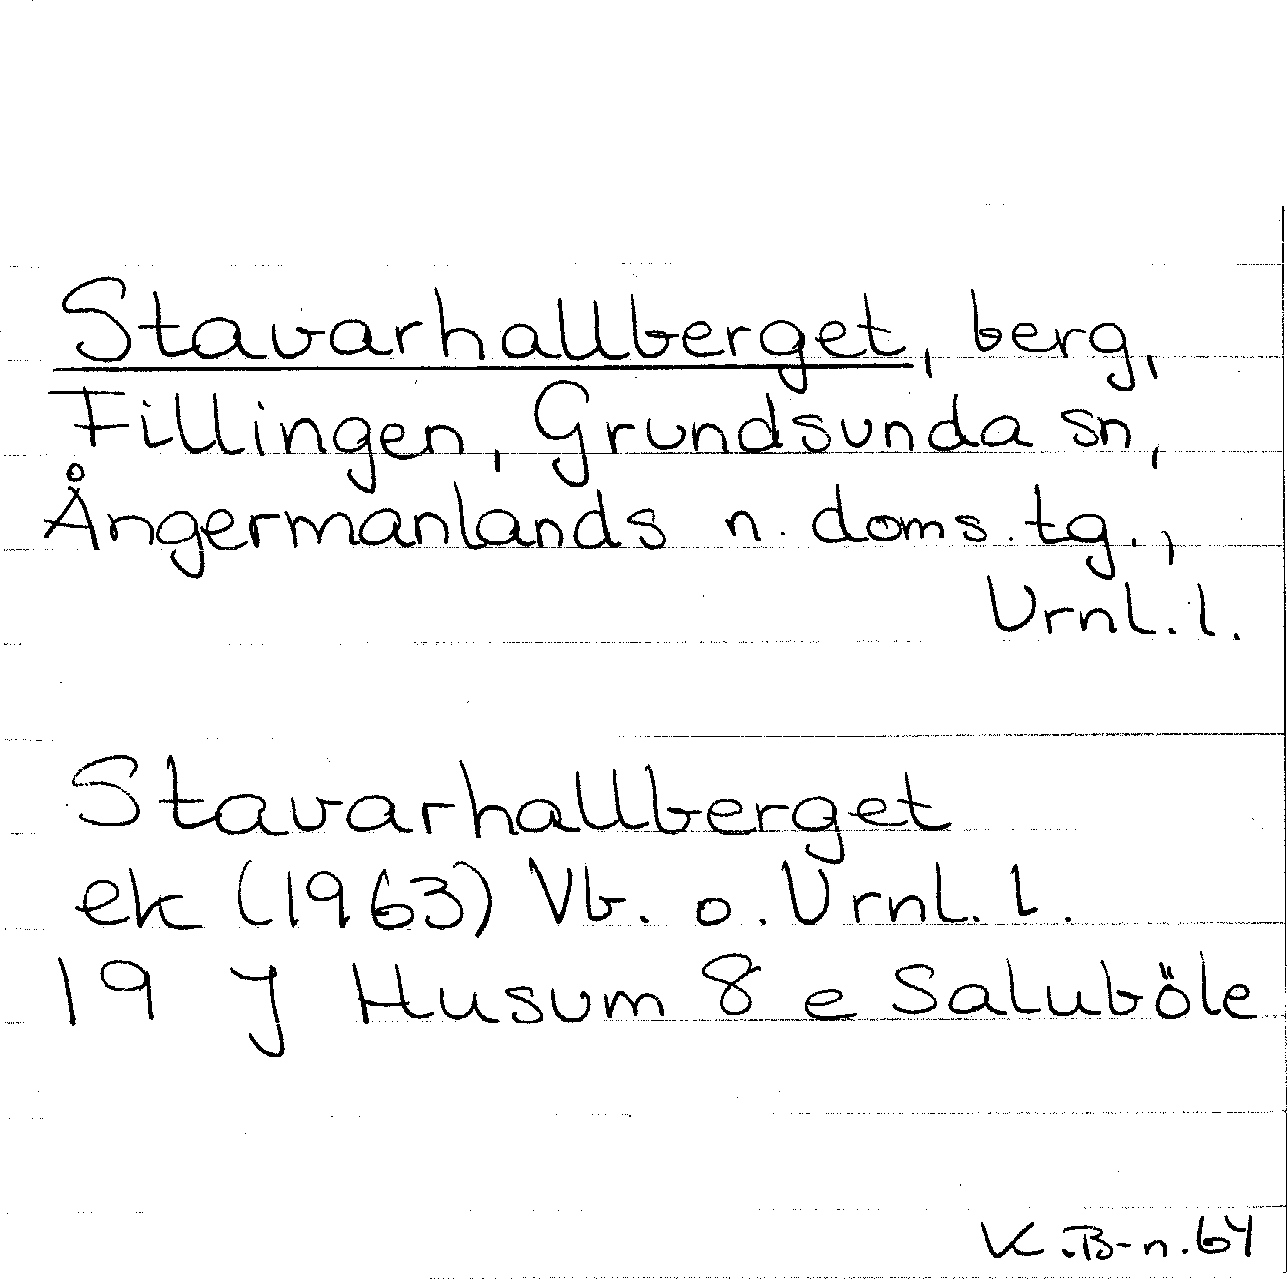 Stavarhallberget, berg,
Fillingen, Grundsunda sn,
Ångermanlands n. doms. tg.,
Vrnl. l.
Stavarhallberget
ek (1963) Vb. o. Vrnl. l.
19 J Husum 8 e Saluböle
K.B-n.64